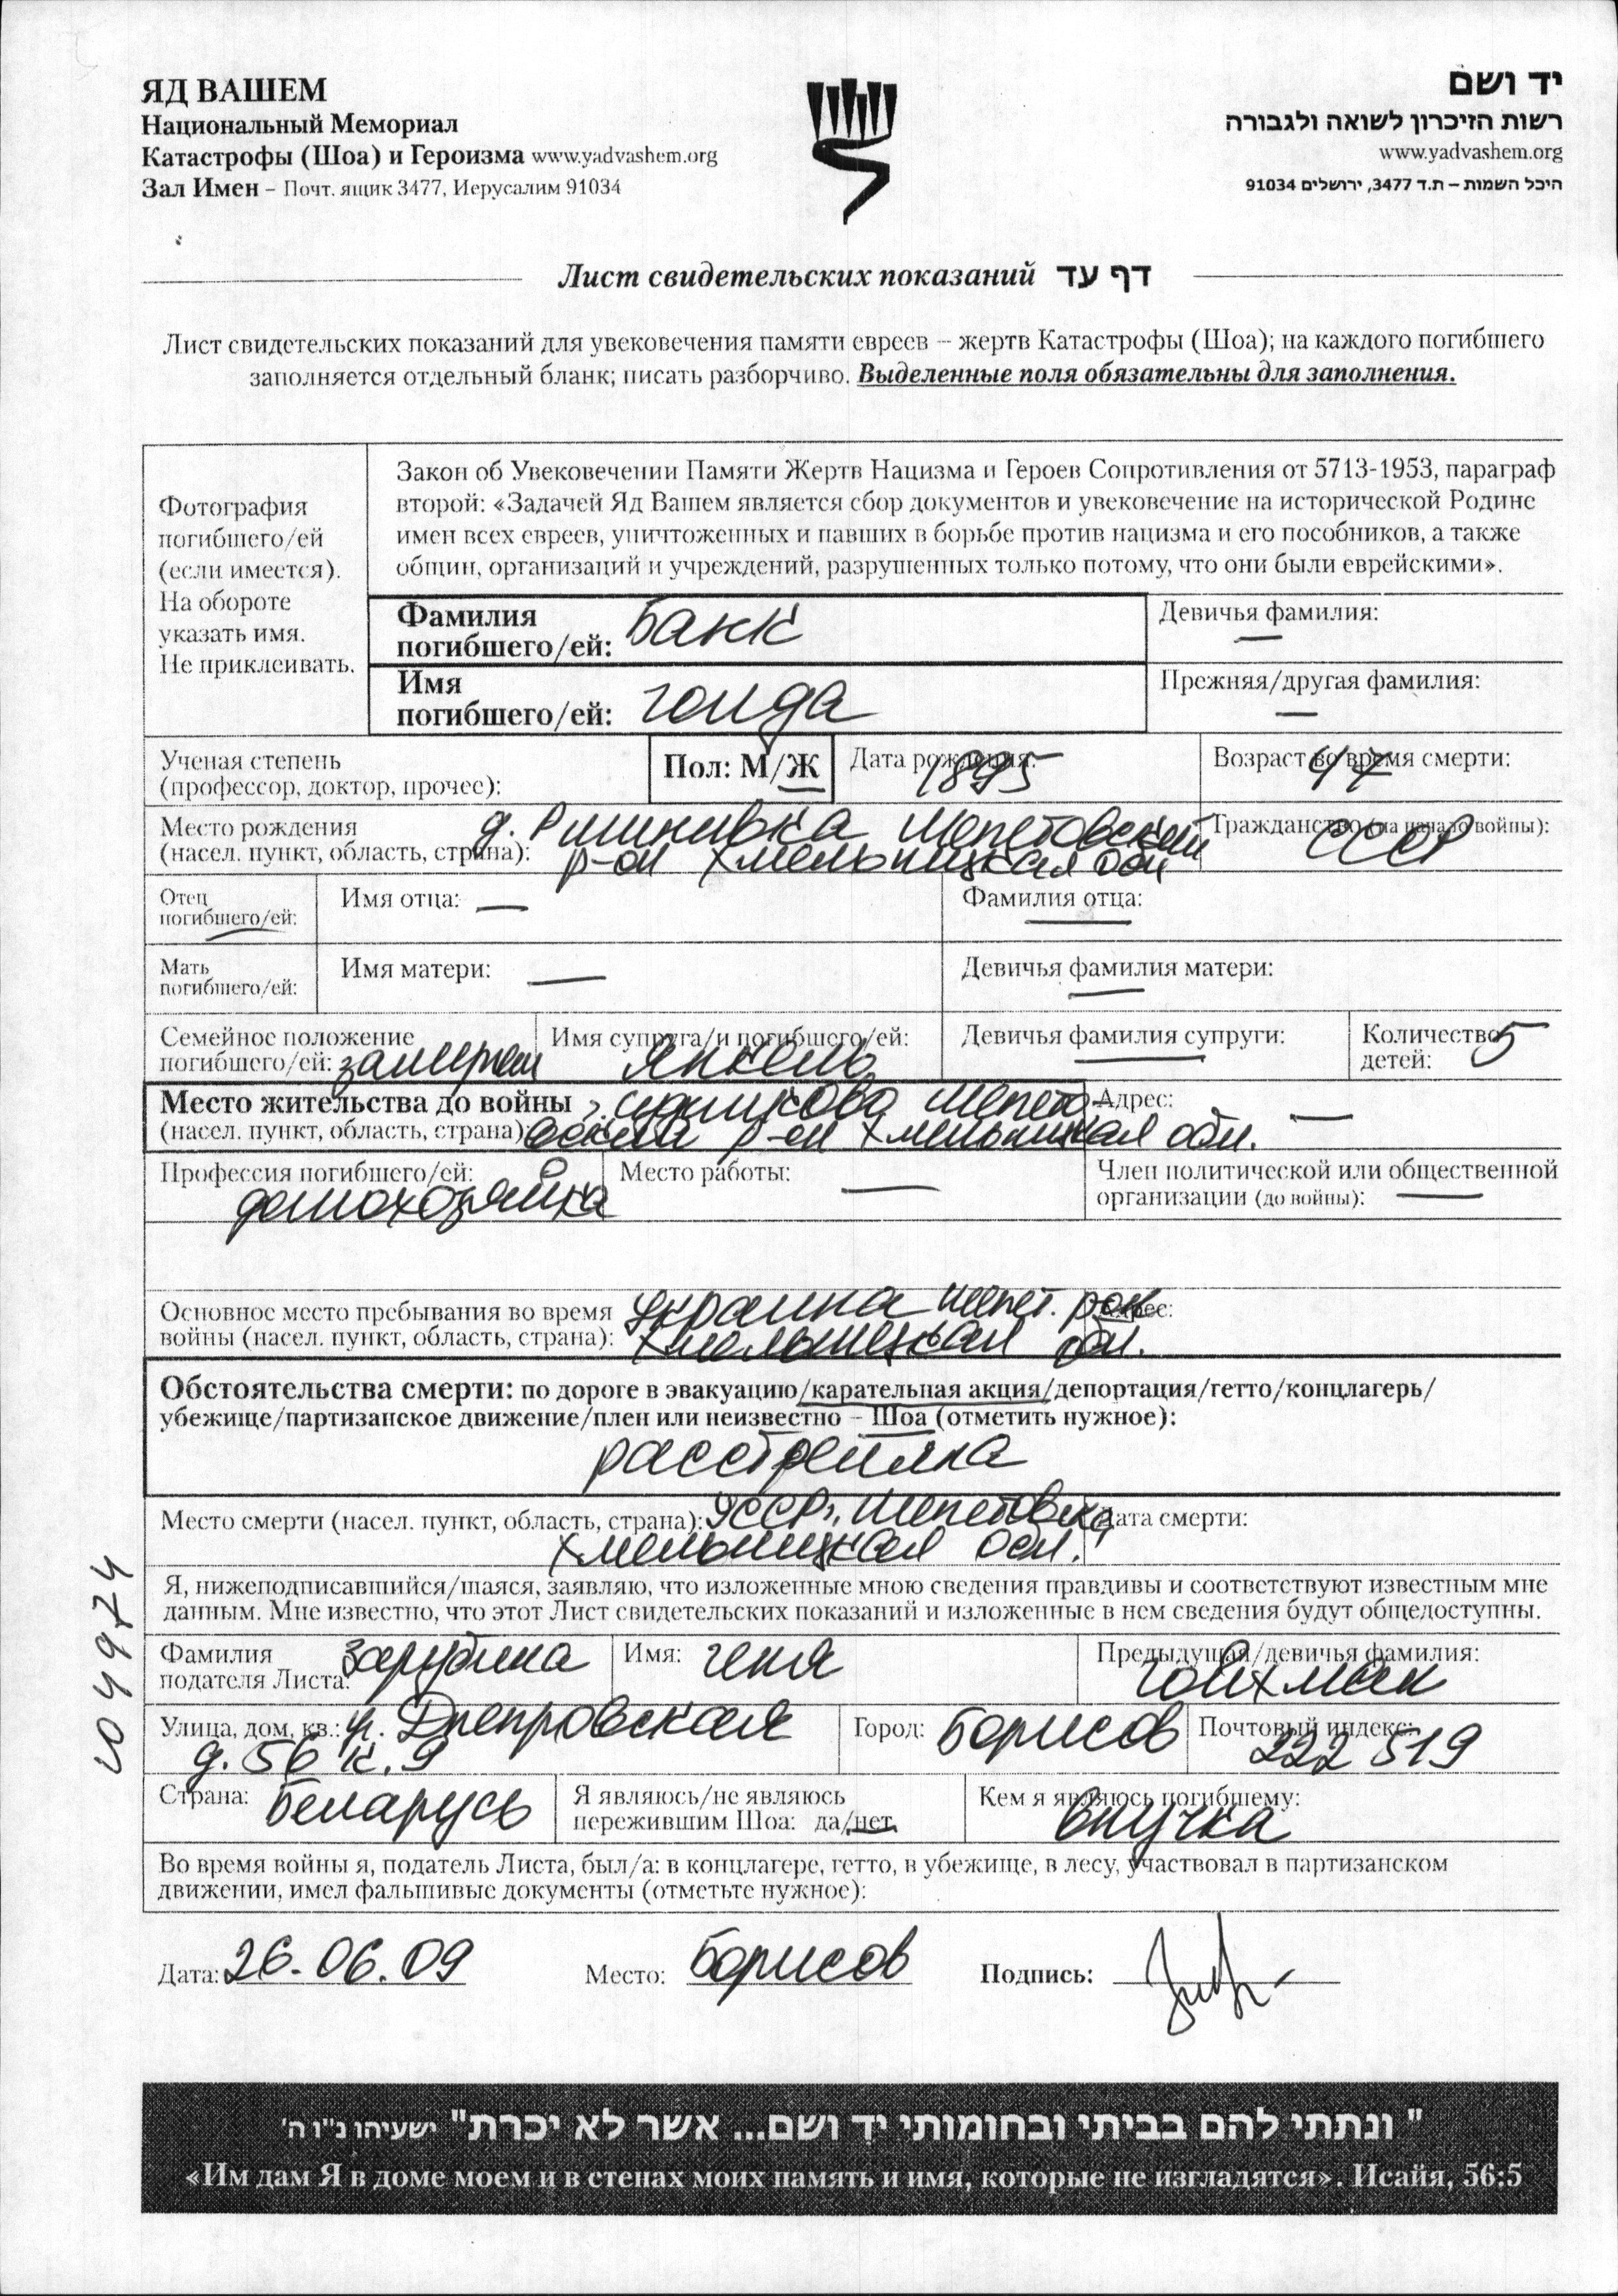 ЯД ВАШЕМ
Национальный Мемориал
Катастрофы (Шоа) и Героизма www.yadvashem.org
Зал Имен – Почт. ящик 3477, Иерусалим 91034
יד ושם
רשות הזיכרון לשואה ולגבורה
www.yadvashem.org
היכל השמות – ת.ד 3477, ירושלים 91034
Лист свидетельских показаний דף עד
Лист свидетельских показаний для увековечения памяти евреев – жертв Катастрофы (Шоа); на каждого погибшего
заполняется отдельный бланк; писать разборчиво. Выделенные поля обязательны для заполнения.
Фотография
погибшего/ей
(если имеется).
На обороте
указать имя.
Не приклеивать.
Закон об Увековечении Памяти Жертв Нацизма и Героев Сопротивления от 5713-1953, параграф
второй: «Задачей Яд Вашем является сбор документов и увековечение на исторической Родине
имен всех евреев, уничтоженных и павших в борьбе против нацизма и его пособников, а также
общин, организаций и учреждений, разрушенных только потому, что они были еврейскими».
Фамилия
погибшего/ей: Банк
Девичья фамилия: —
Имя
погибшего/ей: Голда
Прежняя/другая фамилия: —
Ученая степень
(профессор, доктор, прочее):
Пол: М/Ж
Дата рождения: 1895
Возраст во время смерти: 47
Место рождения
(насел. пункт, область, страна): д. Шепетовский
р-он Хмельницкая обл
Гражданство (на начало войны): СССР
Отец
погибшего/ей:
Имя отца: —
Фамилия отца: —
Мать
погибшего/ей:
Имя матери: —
Девичья фамилия матери: —
Семейное положение
погибшего/ей: замужем
Имя супруга/и погибшего/ей: Янкель
Девичья фамилия супруги: —
Количество
детей: 5
Место жительства до войны Шепето-
(насел. пункт, область, страна) р-он Хмельницкая обл.
Адрес: —
Профессия погибшего/ей:
домохозяйка
Место работы: —
Член политической или общественной
организации (до войны): —
Основное место пребывания во время
войны (насел. пункт, область, страна): Украина Шепет. рон
Хмельницкая обл.
Адрес:
Обстоятельства смерти: по дороге в эвакуацию/карательная акция/депортация/гетто/концлагерь/
убежище/партизанское движение/плен или неизвестно – Шоа (отметить нужное):
расстреляна
Место смерти (насел. пункт, область, страна): УССР, Шепетовка
Хмельницкая обл.
Дата смерти:
Я, нижеподписавшийся/шаяся, заявляю, что изложенные мною сведения правдивы и соответствуют известным мне
данным. Мне известно, что этот Лист свидетельских показаний и изложенные в нем сведения будут общедоступны.
Фамилия
подателя Листа: Зарубина
Имя: Геня
Предыдущая/девичья фамилия:
Гойхман
Улица, дом, кв.: ул. Днепровская
д. 56 к. 9
Город: Борисов
Почтовый индекс:
222519
Страна: Беларусь
Я являюсь/не являюсь
пережившим Шоа: да/нет
Кем я являюсь погибшему:
внучка
Во время войны я, податель Листа, был/а: в концлагере, гетто, в убежище, в лесу, участвовал в партизанском
движении, имел фальшивые документы (отметьте нужное):
Дата: 26.06.09
Место: Борисов
Подпись:
204974
" ונתתי להם בביתי ובחומותי יד ושם... אשר לא יכרת" ישעיהו נ"ו ה'
«Им дам Я в доме моем и в стенах моих память и имя, которые не изгладятся». Исайя, 56:5